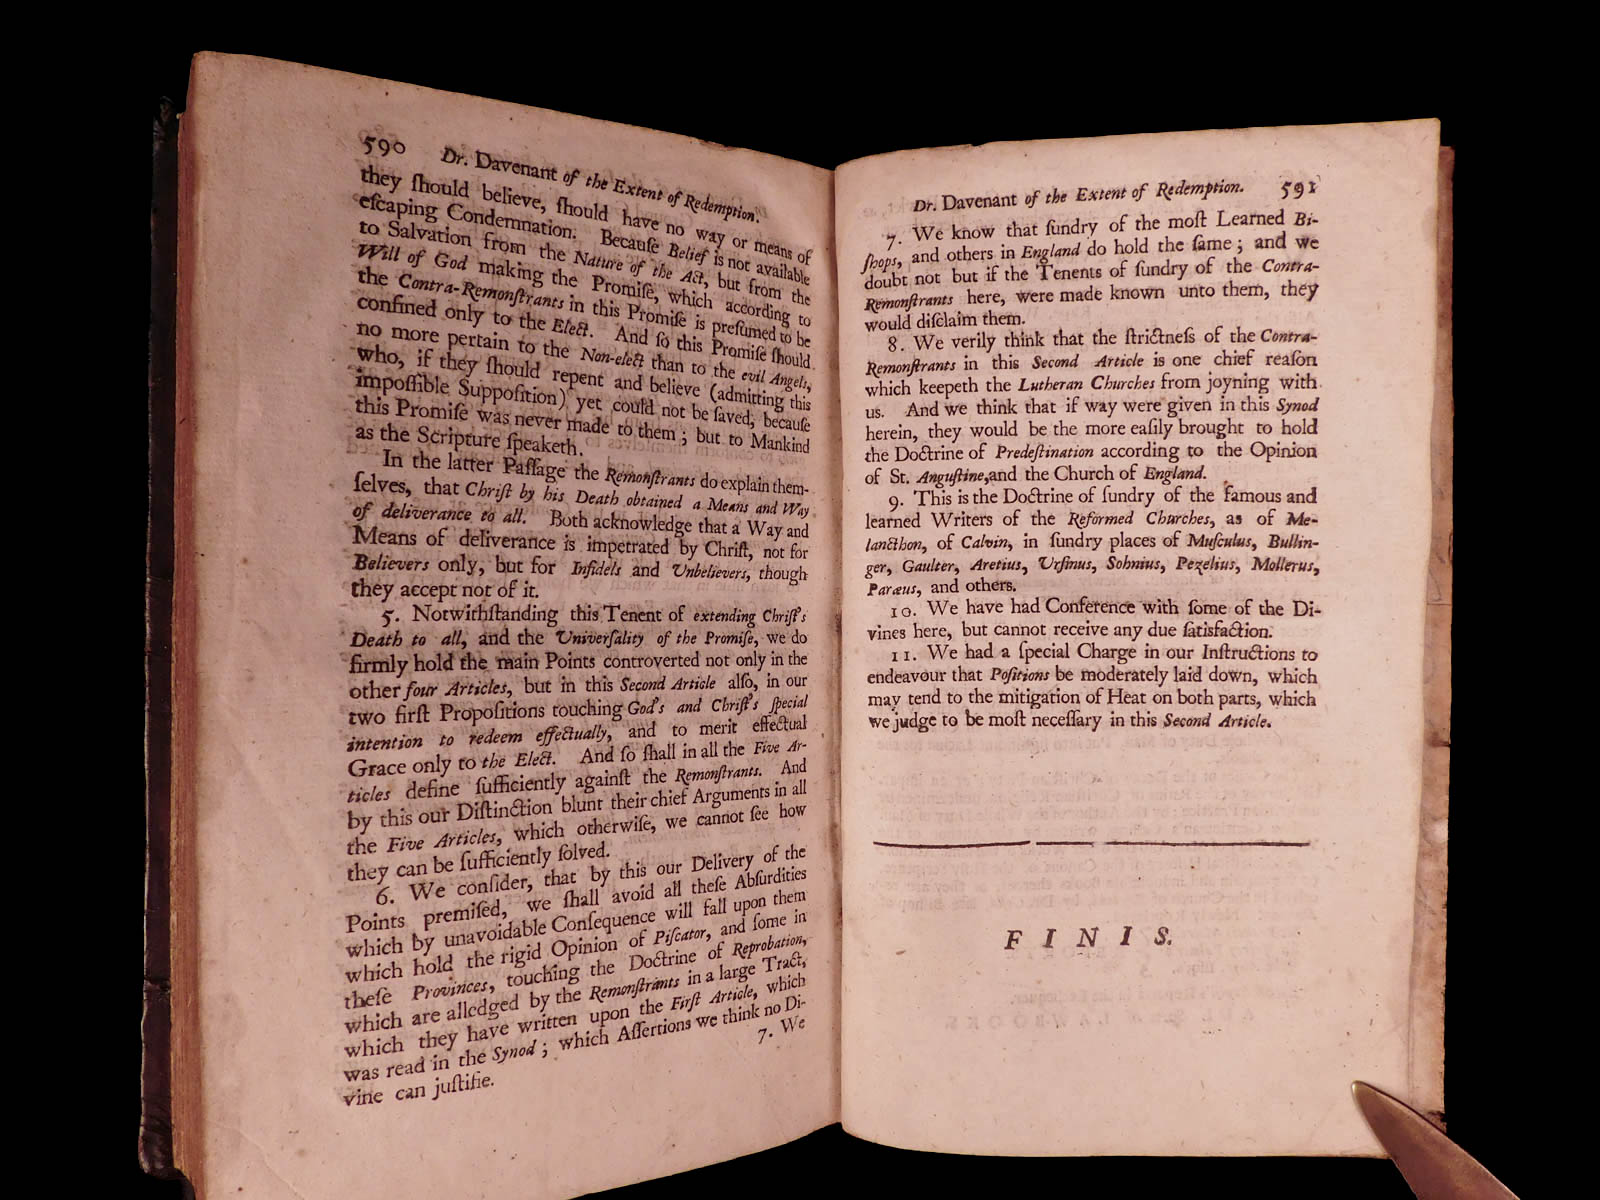 590 Dr. Davenant of the Extent of Redemption.
they ſhould believe, ſhould have no way or means of
eſcaping Condemnation. Becauſe Belief is not available
to Salvation from the Nature of the Act, but from the
Will of God making the Promiſe, which according to
the Contra-Remonſtrants in this Promiſe is preſumed to be
confined only to the Elect. And ſo this Promiſe ſhould
no more pertain to the Non-elect than to the evil Angels,
who, if they ſhould repent and believe (admitting this
impoſſible Suppoſition) yet could not be ſaved, becauſe
this Promiſe was never made to them; but to Mankind
as the Scripture ſpeaketh.
In the latter Paſſage the Remonſtrants do explain them-
ſelves, that Chriſt by his Death obtained a Means and Way
of deliverance to all. Both acknowledge that a Way and
Means of deliverance is impetrated by Chriſt, not for
Believers only, but for Infidels and Unbelievers, though
they accept not of it.
5. Notwithſtanding this Tenent of extending Chriſt's
Death to all, and the Univerſality of the Promiſe, we do
firmly hold the main Points controverted not only in the
other four Articles, but in this Second Article alſo, in our
two firſt Propoſitions touching God's and Chriſt's ſpecial
intention to redeem effectually, and to merit effectual
Grace only to the Elect. And ſo ſhall in all the Five Ar-
ticles define ſufficiently againſt the Remonſtrants. And
by this our Diſtinction blunt their chief Arguments in all
the Five Articles, which otherwiſe, we cannot ſee how
they can be ſufficiently ſolved.
6. We conſider, that by this our Delivery of the
Points premiſed, we ſhall avoid all theſe Abſurdities
which by unavoidable Conſequence will fall upon them
which hold the rigid Opinion of Piſcator, and ſome in
theſe Provinces, touching the Doctrine of Reprobation,
which are alledged by the Remonſtrants in a large Tract,
which they have written upon the Firſt Article, which
was read in the Synod; which Aſſertions we think no Di-
vine can juſtifie.
7. We
Dr. Davenant of the Extent of Redemption. 591
7. We know that ſundry of the moſt Learned Bi-
ſhops, and others in England do hold the ſame; and we
doubt not but if the Tenents of ſundry of the Contra-
Remonſtrants here, were made known unto them, they
would diſclaim them.
8. We verily think that the ſtrictneſs of the Contra-
Remonſtrants in this Second Article is one chief reaſon
which keepeth the Lutheran Churches from joyning with
us. And we think that if way were given in this Synod
herein, they would be the more eaſily brought to hold
the Doctrine of Predeſtination according to the Opinion
of St. Anguſtine, and the Church of England.
9. This is the Doctrine of ſundry of the famous and
learned Writers of the Reformed Churches, as of Me-
lancthon, of Calvin, in ſundry places of Muſculus, Bullin-
ger, Gaulter, Aretius, Urſinus, Sohnius, Pezelius, Mollerus,
Paræus, and others.
10. We have had Conference with ſome of the Di-
vines here, but cannot receive any due ſatisfaction.
11. We had a ſpecial Charge in our Inſtructions to
endeavour that Poſitions be moderately laid down, which
may tend to the mitigation of Heat on both parts, which
we judge to be moſt neceſſary in this Second Article.
FINIS.